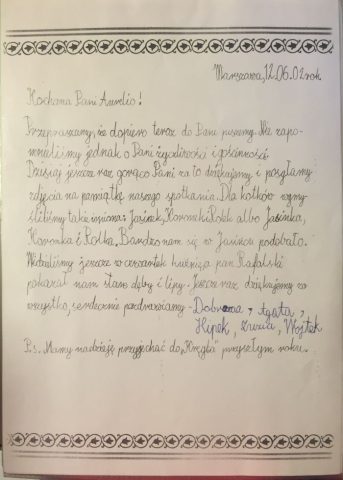 Warszawa, 12.06.02 rok.
Kochana Pani Aurelio!
Przepraszamy, że dopiero teraz do Pani piszemy. Nie zapo-
mnieliśmy jednak o Pani życzliwości i gościnności.
Dzisiaj jeszcze raz gorąco Pani za to dziękujemy i posyłamy
zdjęcia na pamiątkę naszego spotkania. Dla kotków wymy-
śliliśmy takie imiona: Jasiek, Rolek albo Jasinka,
i Rolka. Bardzo nam się w Jasińcu podobało.
Widzieliśmy jeszcze w czwartek księdza pan Rafalski
pokazał nam stare dęby i lipy. Jeszcze raz dziękujemy za
wszystko, serdecznie pozdrawiamy - Dobrawa, Agata,
Hipek, Zuzia, Wojtek
Ps. Mamy nadzieję przyjechać do przyszłym roku.